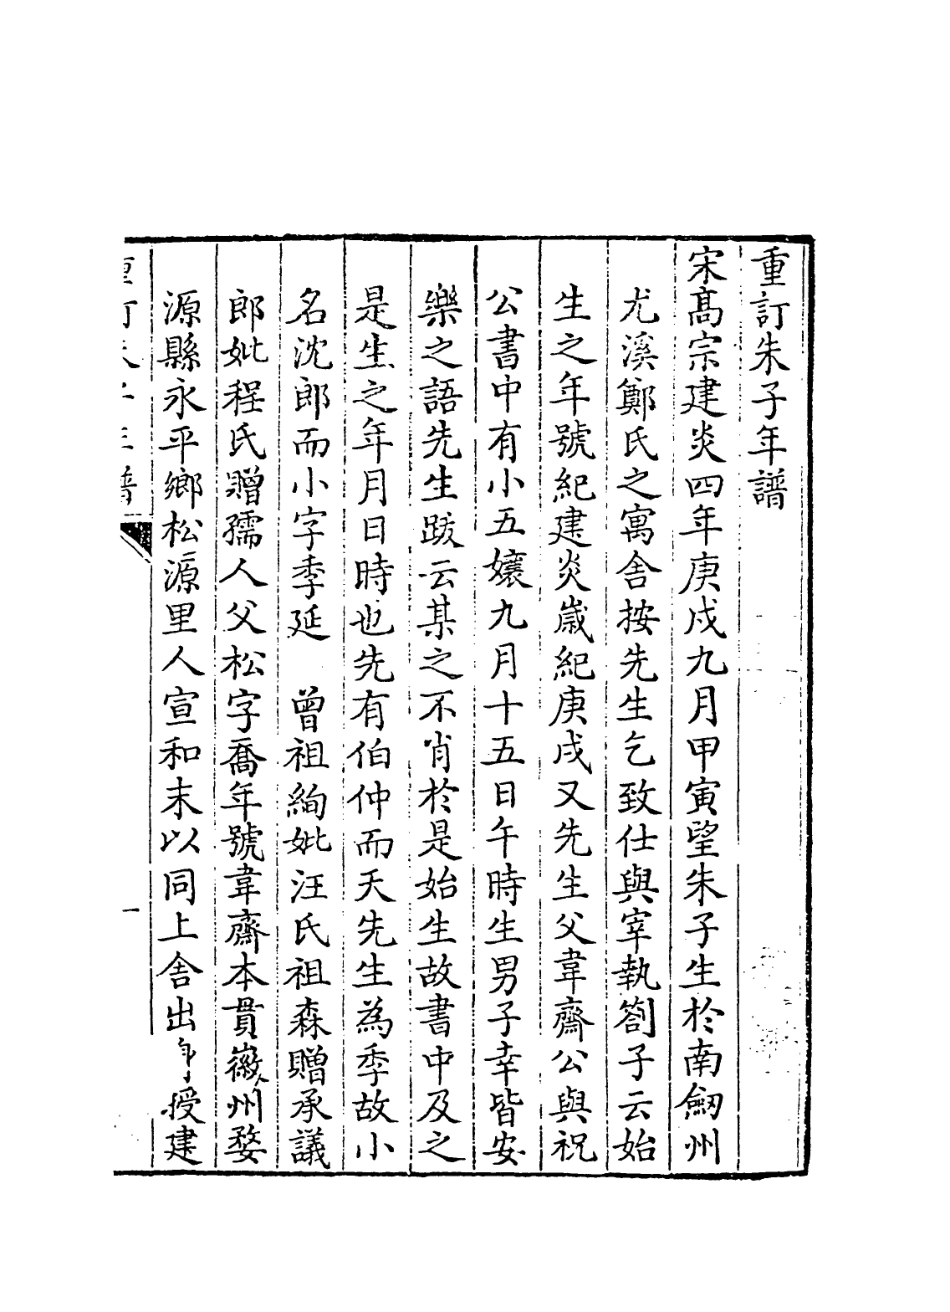 重訂朱子年譜
宋髙宗建炎四年庚戌九月甲寅望朱子生於南劒州
尤溪鄭氏之寓舍按先生乞致仕與宰執劄子云始
生之年號紀建炎歲紀庚戌又先生父韋齋公與祝
公書中有小五孃九月十五日午時生男子幸皆安
樂之語先生跋云某之不肖於是始生故書中及之
是生之年月日時也先有伯仲而夭先生為季故小
名沈郎而小字季延　曾祖絢妣汪氏祖森贈承議
郎妣程氏贈孺人父松字喬年號韋齋本貫徽州婺
源縣永平鄉松源里人宣和末以同上舍出身授建
重訂朱子年譜
一